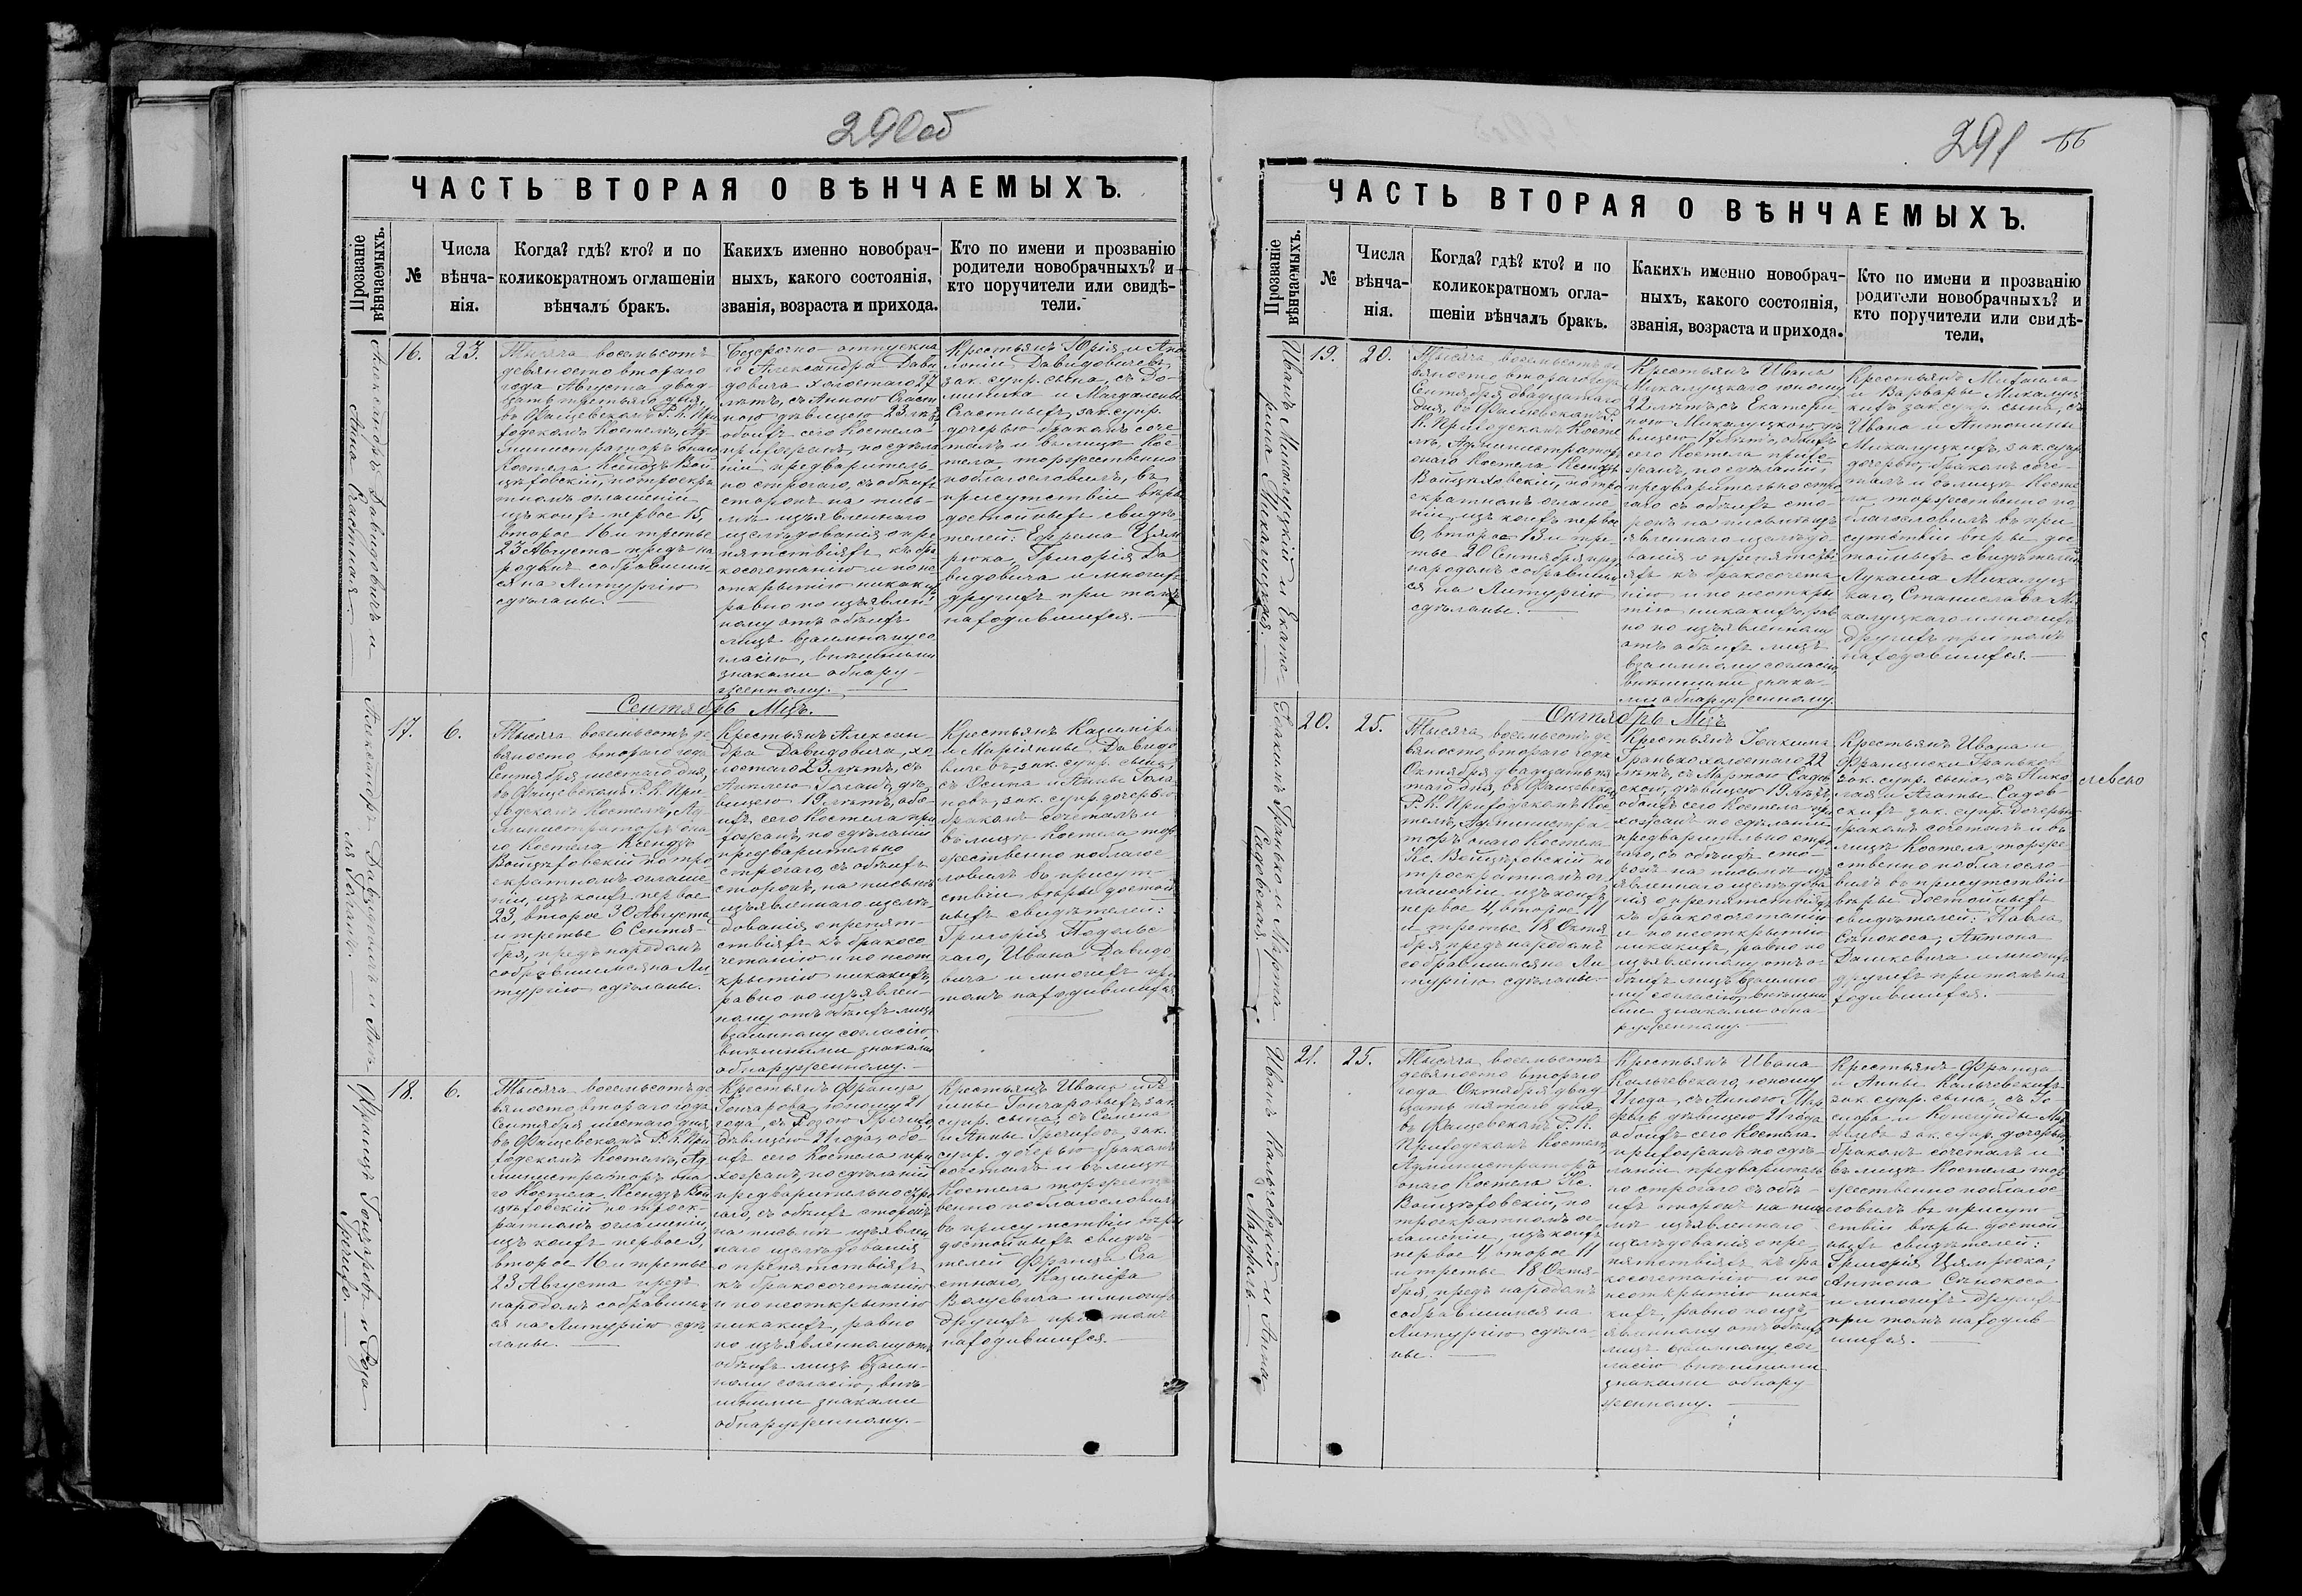 290об
ЧАСТЬ ВТОРАЯ О ВѢНЧАЕМЫХЪ.
Прозваніе
вѣнчаемыхъ.
№
Числа
вѣнча-
нія.
Когда? гдѣ? кто? и по
коликократномъ оглашеніи
вѣнчалъ бракъ.
Какихъ именно новобрач-
ныхъ, какого состоянія,
званія, возраста и прихода.
Кто по имени и прозванію
родители новобрачныхъ? и
кто поручители или свидѣ-
тели.
Александръ Давидовичъ и
Анна Счастная.
16.
23.
Тысяча восемьсотъ
девяносто втораго
года Августа двад-
цать третьяго дня,
въ Фащевскомъ Р. К. При
ходскомъ Костелѣ, Ад-
министраторъ онаго
Костела Ксендзъ Вой
цѣховскій, по троекра
тномъ оглашеніи
изъ коихъ первое 15,
второе 16 и третье
23 Августа предъ на
родомъ собравшим
ся на Литургію
сдѣланы.
Безсрочно отпускна
го Александра Дави
довича холостаго 27
лѣтъ, съ Анною Счаст
ною дѣвицею 23 лѣтъ,
обоихъ сего Костела
прихожанъ, по сдѣла
ніи предваритель-
но строгаго, съ обѣихъ
сторонъ на пись-
мѣ изъявленнаго
изслѣдованія о пре
пятствіяхъ къ бра
косочетанію и по не
открытію никакихъ
равно по изъявлен-
ному отъ обѣихъ
лицъ взаимному со
гласію, внѣшними
знаками обнару-
женному.
Крестьянъ Юрія и Апо
лоніи Давидовичевъ,
зак. супр. сына, съ До-
миника и Магдалены
Счастныхъ, зак. супр.
дочерью бракомъ соче
талъ и въ лицѣ Кос-
тела торжественно
поблагословилъ, въ
присутствіи вѣры
достойныхъ свидѣ-
телей: Ефрема Цям
рюка, Григорія Да
видовича и многихъ
другихъ при томъ
находившихся.
Сентябрь Мцъ.
Александръ Давидовичъ и Анѣ
ля Голанъ.
17.
6.
Тысяча восемьсотъ де
вяносто втораго года
Сентября шестаго дня,
въ Фащевскомъ Р. К. При
ходскомъ Костелѣ, Ад-
министраторъ она
го Костела Ксендзъ
Войцѣховскій по тро
екратномъ оглаше-
ніи, изъ коихъ первое
23, второе 30 Августа
и третье 6 Сентя-
бря, предъ народомъ
собравшимся на Ли
тургію сдѣланы.
Крестьянъ Алексан-
дра Давидовича, хо
лостаго 23 лѣтъ, съ
Анелею Голанъ, дѣ-
вицею 19 лѣтъ, обо-
ихъ сего Костела при
хожанъ, по сдѣланіи
предварительно
строгаго, съ обѣихъ
сторонъ, на письмѣ
изъявленнаго изслѣ-
дованія, о препят-
ствіяхъ къ бракосо
четанію и по неот
крытію никакихъ,
равно по изъявлен-
ному отъ обѣихъ лицъ
взаимному согласію
внѣшними знаками
обнаруженному.
Крестьянъ Казиміра
и Маріанны Давидо
вичевъ, зак. супр. сына,
съ Осипа и Анны Гола
новъ, зак. супр. дочерью
бракомъ сочеталъ и
въ лицѣ Костела тор
жественно поблагос-
ловилъ въ присут-
ствіи вѣры достой
ныхъ свидѣтелей:
Григорія Подольс-
каго, Ивана Давидо
вича и многихъ при
томъ находившихся
Францъ Гончаровъ и Роза
Гречихо.
18.
6.
Тысяча восемьсотъ де
вяносто втораго года
Сентября шестаго дня
въ Фащевскомъ Р. К. При
ходскомъ Костелѣ, Ад
министраторъ она
го Костела Ксендзъ Вой
цѣховскій по троек-
ратномъ оглашеніи,
изъ коихъ первое 9,
второе 16 и третье
23 Августа предъ
народомъ собравшим
ся на Литургію сдѣ-
ланы.
Крестьянъ Франца
Гончарова, юношу 21
года, съ Розою Гречихо,
дѣвицею 21 года, обо-
ихъ сего Костела при
хожанъ, по сдѣланіи
предварительно стро
гаго, съ обѣихъ сторонъ
на письмѣ изъявлен
наго изслѣдованія
о препятствіяхъ
къ бракосочетанію
и по неоткрытію
никакихъ, равно
по изъявленному отъ
обѣихъ лицъ взаим-
ному согласію, внѣ-
шними знаками
обнаруженному.
Крестьянъ Ивана и
Анны Гончаровыхъ зак.
супр. сына, съ Семена
и Анны Гречиховъ зак.
супр. дочерью бракомъ
сочеталъ и въ лицѣ
Костела торжест-
венно поблагословилъ
въ присутствіи вѣры
достойныхъ свидѣ-
телей Франца Сча
стнаго, Казиміра
и многихъ
другихъ при томъ
находившихся.
291
ЧАСТЬ ВТОРАЯ О ВѢНЧАЕМЫХЪ.
Прозваніе
вѣнчаемыхъ.
№
Числа
вѣнча-
нія.
Когда? гдѣ? кто? и по
коликократномъ огла-
шеніи вѣнчалъ бракъ.
Какихъ именно новобрач-
ныхъ, какого состоянія,
званія, возраста и прихода.
Кто по имени и прозванію
родители новобрачныхъ? и
кто поручители или свидѣ-
тели.
Иванъ Михалуцкій и Екате-
рина Михалуцкая.
19.
20.
Тысяча восемьсотъ де
вяносто втораго года
Сентября двадцатаго
дня, въ Фащевскомъ Р.
К. Приходскомъ Косте
лѣ, Администраторъ
онаго Костела Ксендзъ
Войцѣховскій, по тро
екратномъ оглаше-
ніи, изъ коихъ первое
6, второе 13 и тре-
тье 20 Сентября предъ
народомъ собравшим
ся на Литургію
сдѣланы.
Крестьянъ Ивана
Михалуцкаго юношу
22 лѣтъ, съ Екатери
ною Михалуцкою дѣ
вицею 17 лѣтъ, обоихъ
сего Костела прихо
жанъ, по сдѣланіи,
предварительно стро
гаго съ обѣихъ сто-
ронъ на письмѣ изъ
явленнаго изслѣдо-
ванія о препятстві
яхъ къ бракосочета
нію и по неоткры
тію никакихъ, рав
но по изъявленному
отъ обѣихъ лицъ
взаимному согласію,
внѣшними знака-
ми обнаруженному.
Крестьянъ Михаила
и Варвары Михалуц
кихъ зак. супр. сына, съ
Ивана и Антонины
Михалуцкихъ, зак. супр.
дочерью, бракомъ соче-
талъ и въ лицѣ Косте
ла торжественно по
благословилъ въ при
сутствіи вѣры дос
тойныхъ свидѣтелей
Лукаша Михалуц
каго, Станислава Ми
халуцкаго и многихъ
другихъ при томъ
находившихся.
Октябрь Мцъ
Іоакимъ Гранько и Марта
Садовская.
20.
25.
Тысяча восемьсотъ де
вяносто втораго года
Октября двадцать пя
таго дня, въ Фащевскомъ
Р. К. Приходскомъ Кос
телѣ, Администра-
торъ онаго Костела
Кс. Войцѣховскій по
троекратномъ ог
лашеніи изъ коихъ
первое 4, второе 11
и третье 18 Октя-
бря предъ народомъ
собравшимся на Ли
тургію сдѣланы.
Крестьянъ Іоакима
Гранько холостаго 22
лѣтъ, съ Мартою Садов
скою, дѣвицею 19 лѣтъ,
обоихъ сего Костела при
хожанъ по сдѣланіи
предварительно стро-
гаго, съ обѣихъ сто-
ронъ на письмѣ изъ
явленнаго изслѣдова
нія о препятствіяхъ
къ бракосочетанію
и по неоткрытію
никакихъ, равно по
изъявленному отъ о-
бѣихъ лицъ взаимно
му согласію, внѣшни
ми знаками обна-
руженному.
Крестьянъ Ивана и
Францишки Граньков-
зак. супр. сына, съ Нико
лая и Агаты Садов-
скихъ зак. супр. дочерью
бракомъ сочеталъ и въ
лицѣ Костела торже
ственно поблагосло-
вилъ въ присутствіи
вѣры достойныхъ
свидѣтелей: Павла
Сѣнокоса, Антона
Дашкевича и многихъ
другихъ при томъ на
ходившихся.
Иванъ Кольчевскій и Анна
Марфель.
21.
25.
Тысяча восемьсотъ
девяносто втораго
года Октября двад
цать пятаго дня
въ Фащевскомъ Р. К.
Приходскомъ Костелѣ,
Администраторъ
онаго Костела Кс.
Войцѣховскій, по
троекратномъ ог
лашеніи, изъ коихъ
первое 4, второе 11
и третье 18 Октя-
бря, предъ народомъ
собравшимся на
Литургію сдѣла-
ны.
Крестьянъ Ивана
Кольчевскаго, юношу
21 года, съ Анною Мар
фель дѣвицею 21 года
обоихъ сего Костела
прихожанъ по сдѣ-
ланіи предваритель
но строгаго съ обѣ-
ихъ сторонъ на пись
мѣ изъявленнаго
изслѣдованія о пре-
пятствіяхъ къ бра
косочетанію и по
неоткрытію ника
кихъ, равно по изъ-
явленному отъ обѣихъ
лицъ взаимному сог-
ласію внѣшними
знаками обнару-
женному.
Крестьянъ Франца
и Анны Кольчевскихъ
зак. супр. сына, съ
и Кунегунды Мар
фелевъ зак. супр. дочерью,
бракомъ сочеталъ и
въ лицѣ Костела тор
жественно поблагос-
ловилъ въ присут-
ствіи вѣры достой
ныхъ свидѣтелей:
Григорія Цямрюка,
Антона Сѣнокоса
и многихъ другихъ
при томъ находив-
шихся.